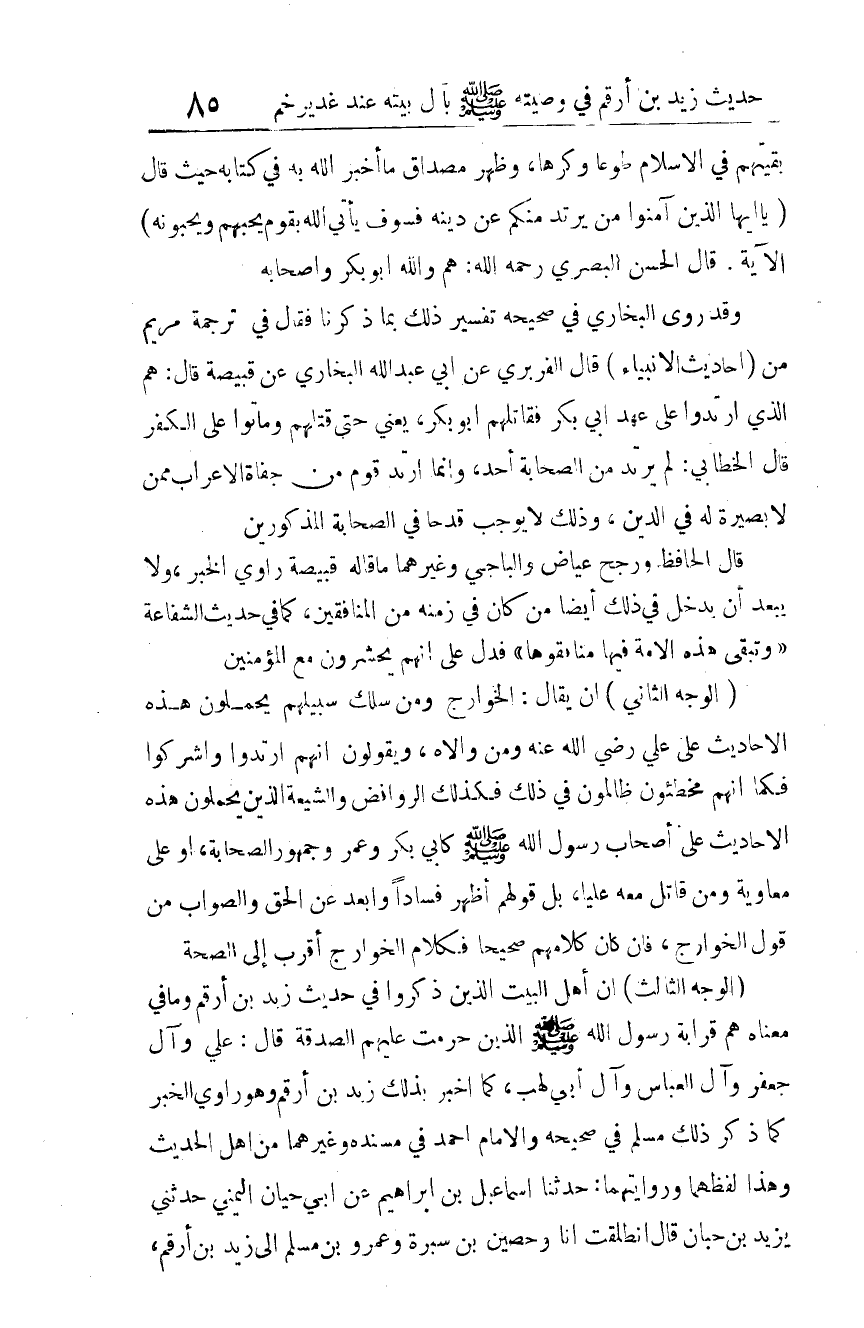 حديث زيد بن أرقم في وصيته ﷺ بآل بيته عند غدير خم ٨٥
بقيتهم في الاسلام طوعا وكرها، وظهر مصداق ماأخبر الله به في كتابه حيث قال
( ياايها الذين آمنوا من يرتد منكم عن دينه فسوف يأتي الله بقوم يحبهم ويحبونه )
الآية . قال الحسن البصري رحمه الله: هم والله ابو بكر واصحابه
وقد روى البخاري في صحيحه تفسير ذلك بما ذكرنا فقال في ترجمة مريم
من ( احاديث الانبياء ) قال الفربري عن ابي عبدالله البخاري عن قبيصة قال: هم
الذي ارتدوا على عهد ابي بكر فقاتلهم ابو بكر، يعني حتى قتلهم وماتوا على الكفر
قال الخطابي: لم يرتد من الصحابة أحد، وانما ارتد قوم من جفاة الاعراب ممن
لا بصيرة له في الدين ، وذلك لايوجب قدحا في الصحابة المذكورين
قال الحافظ ورجح عياض والباجي وغيرهما ماقاله قبيصة راوي الخبر ،ولا
يبعد أن يدخل في ذلك أيضا من كان في زمنه من المنافقين، كما في حديث الشفاعة
« وتبقى هذه الامة فيها منافقوها» فدل على انهم يحشرون مع المؤمنين
( الوجه الثاني ) ان يقال : الخوارج ومن سلك سبيلهم يحملون هذه
الاحاديث على علي رضي الله عنه ومن والاه ، ويقولون انهم ارتدوا واشركوا
فكما انهم مخطئون ظالمون في ذلك فكذلك الروافض والشيعة الذين يحملون هذه
الاحاديث على أصحاب رسول الله ﷺ كابي بكر وعمر وجمهور الصحابة، او على
معاوية ومن قاتل معه عليا، بل قولهم أظهر فساداً وابعد عن الحق والصواب من
قول الخوارج ، فان كان كلامهم صحيحا فكلام الخوارج أقرب إلى الصحة
(الوجه الثالث) ان أهل البيت الذين ذكروا في حديث زيد بن أرقم ومافي
معناه هم قرابة رسول الله ﷺ الذين حرمت عليهم الصدقة قال : علي وآل
جعفر وآل العباس وآل أبي لهب، كما اخبر بذلك زيد بن أرقم وهو راوي الخبر
كما ذكر ذلك مسلم في صحيحه والامام احمد في مسنده وغيرهما من اهل الحديث
وهذا لفظهما وروايتهما: حدثنا اسماعيل بن ابراهيم عن ابي حيان اليمني حدثني
يزيد بن حبان قال انطلقت انا وحصين بن سبرة وعمرو بن مسلم الى زيد بن أرقم،